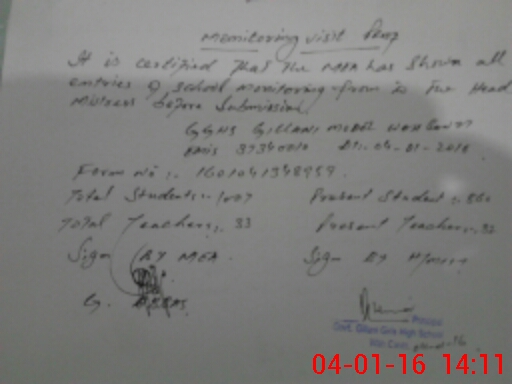 Monitoring visit
It is certified that the MEA has shown all
entries of school monitoring form to the Head
Mistress before submission.
GGHS GILLANI MODEL
EMIS 37340010 Dt: 04-01-2016
Form No :- 1601041348959
Total Students:- Present Student:- 860
Total Teachers:- 33 Present Teachers:- 32
Sign BY MEA Sign BY
G.
Principal
Govt. Gillani Girls High School
Wah Cantt.
04-01-16 14:11